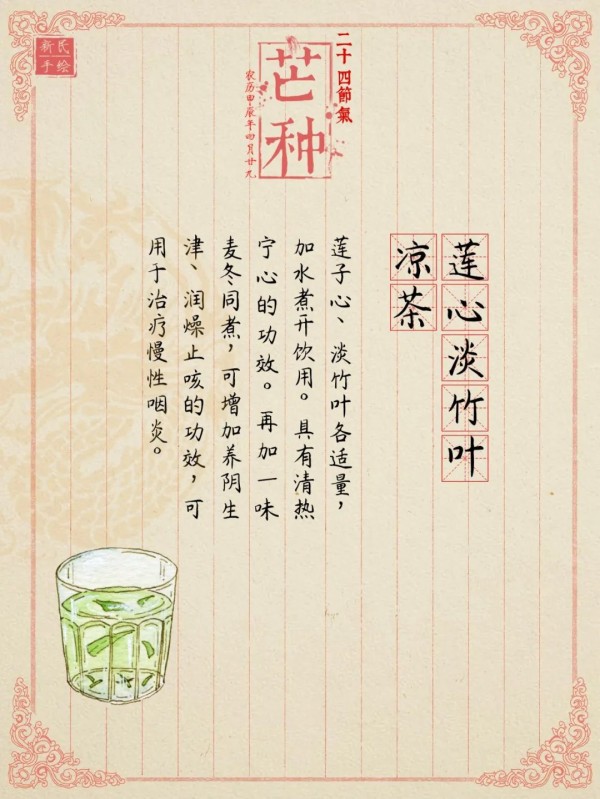 新民
手绘
二十四節氣
芒种
农历甲辰年四月廿九
莲心淡竹叶
凉茶
莲子心、淡竹叶各适量，
加水煮开饮用。具有清热
宁心的功效。再加一味
麦冬同煮，可增加养阴生
津、润燥止咳的功效，可
用于治疗慢性咽炎。